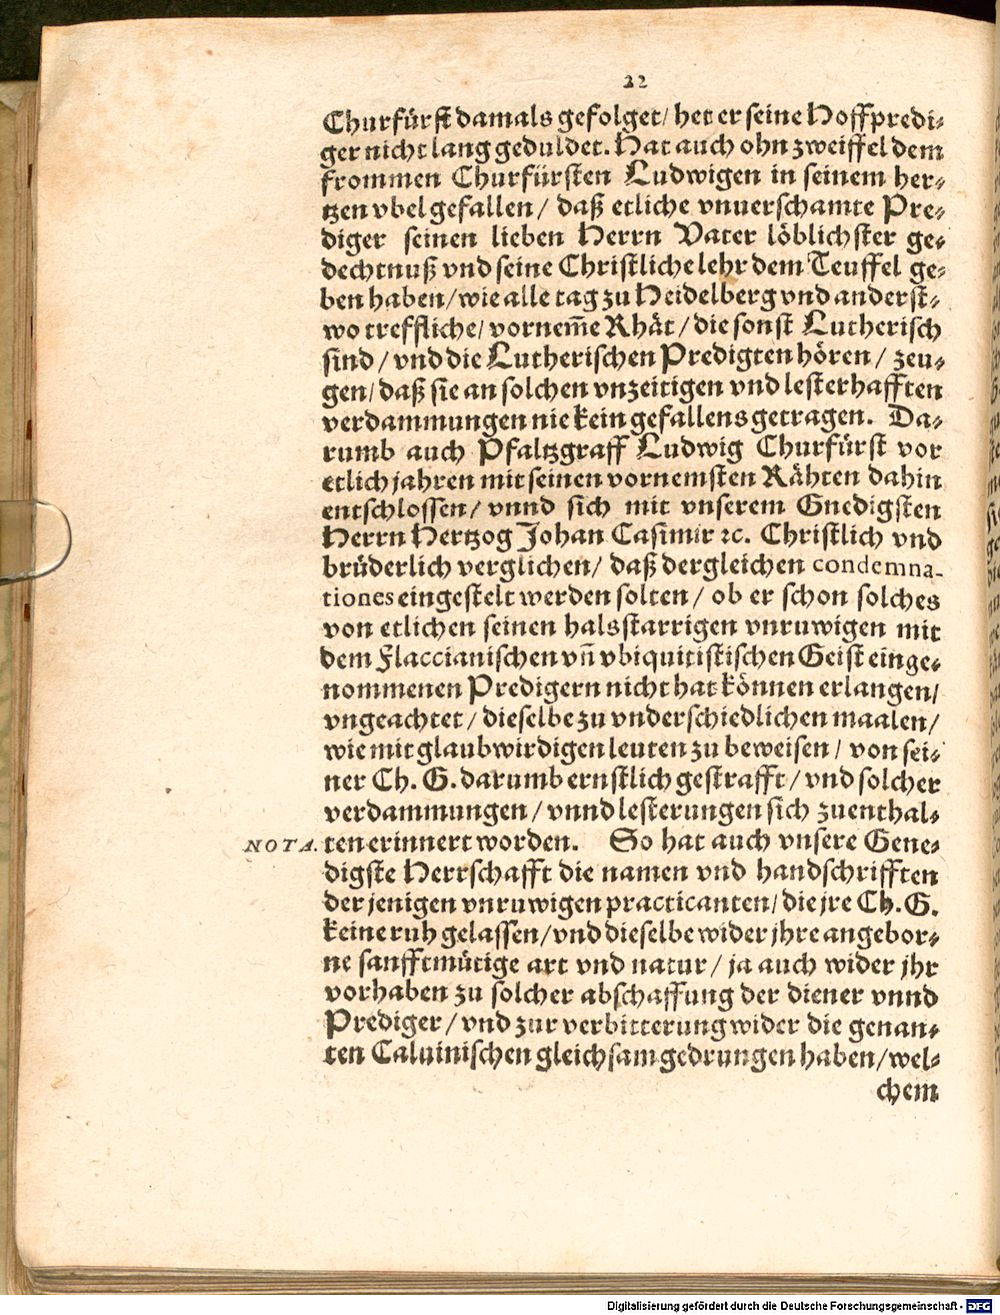 22
Churfürst damals gefolget/ het er seine Hoffpredi⸗
ger nicht lang geduldet. Hat auch ohn zweiffel dem
frommen Churfürsten Ludwigen in seinem her⸗
tzen vbel gefallen / daß etliche vnuerschamte Pre⸗
diger seinen lieben Herrn Vater löblichster ge⸗
dechtnuß vnd seine Christliche lehr dem Teuffel ge⸗
ben haben/ wie alle tag zu Heidelberg vnd anderst⸗
wo treffliche/ vornem̃e Rhät / die sonst Lutherisch
sind / vnd die Lutherischen Predigten hören / zeu⸗
gen/ daß sie an solchen vnzeitigen vnd lesterhafften
verdammungen nie kein gefallens getragen. Da⸗
rumb auch Pfaltzgraff Ludwig Churfürst vor
etlich jahren mit seinen vornemsten Rähten dahin
entschlossen / vnnd sich mit vnserem Gnedigsten
Herrn Hertzog Johan Casimir ꝛc. Christlich vnd
brüderlich verglichen/ daß dergleichen condemna-
tiones eingestelt werden solten / ob er schon solches
von etlichen seinen halsstarrigen vnruwigen mit
dem Flaccianischen vñ vbiquitistischen Geist einge⸗
nommenen Predigern nicht hat können erlangen/
vngeachtet / dieselbe zu vnderschiedlichen maalen/
wie mit glaubwirdigen leuten zu beweisen / von sei⸗
ner Ch. G. darumb ernstlich gestrafft / vnd solcher
verdammungen / vnnd lesterungen sich zuenthal⸗
NOTA. ten erinnert worden. So hat auch vnsere Gene⸗
digste Herrschafft die namen vnd handschrifften
der jenigen vnruwigen practicanten/ die jre Ch. G.
keine ruh gelassen/ vnd dieselbe wider jhre angebor⸗
ne sanfftmütige art vnd natur / ja auch wider jhr
vorhaben zu solcher abschaffung der diener vnnd
Prediger / vnd zur verbitterung wider die genan⸗
ten Caluinischen gleichsam gedrungen haben/ wel⸗
chem
Digitalisierung gefördert durch die Deutsche Forschungsgemeinschaft - DFG